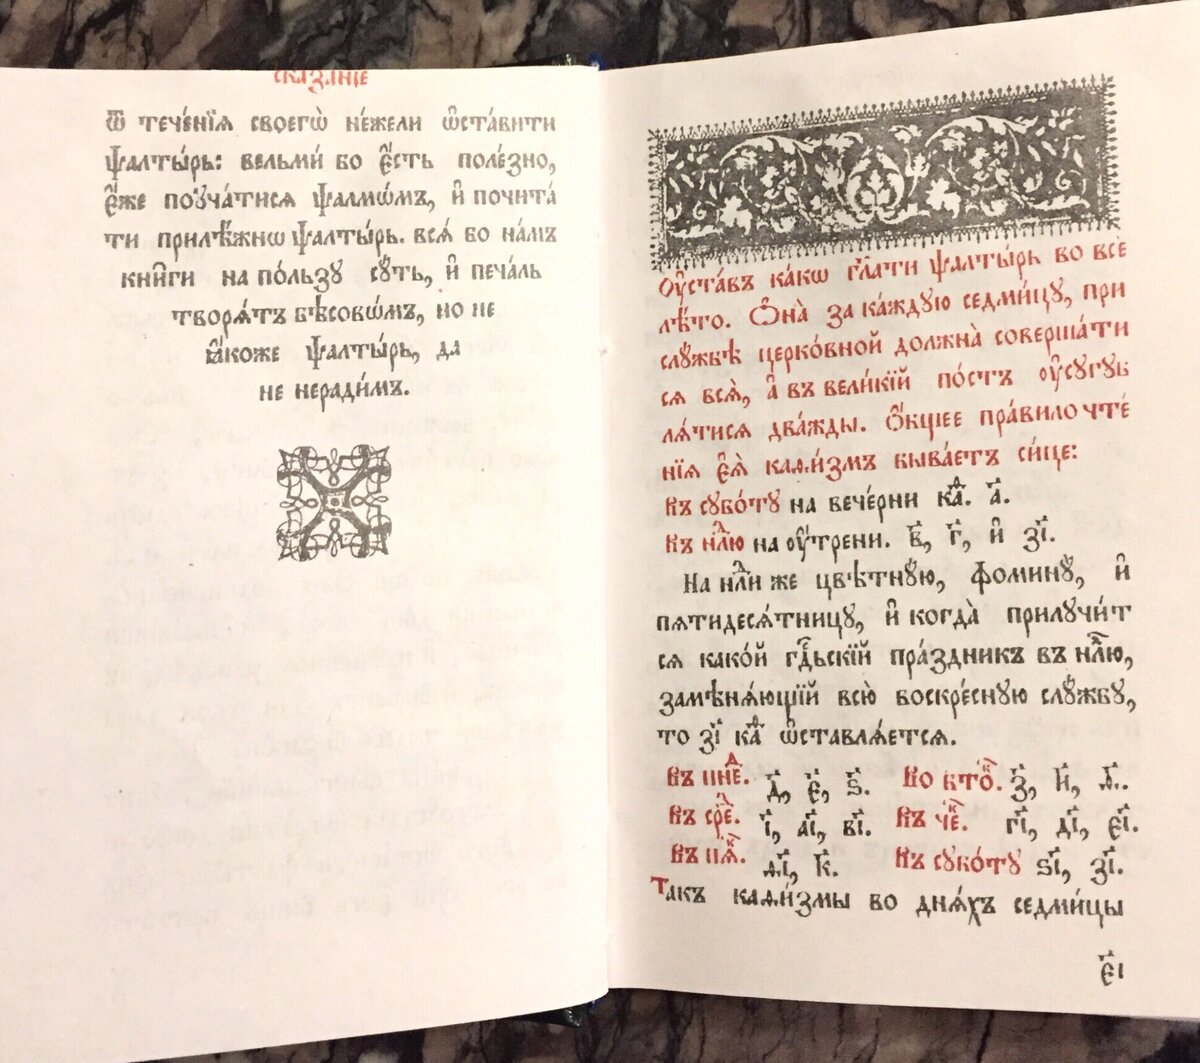 сказаніе
ѿ тече́нїѧ своегѡ̀ не́жели ѡ҆ста́вити
ѱалты́рь: вельми́ бо є҆́сть поле́зно,
є҆́же поꙋча́тисѧ ѱалмѡ́мъ, и҆ почита́
ти прилѣ́жнѡ ѱалты́рь. всѧ́ бо на́мъ
кни̑ги на по́льзꙋ сꙋ́ть, и҆ печа́ль
творѧ́тъ бѣсовѡ́мъ, но не
ꙗ҆́коже ѱалты́рь, да
не неради́мъ.
Оу҆ста́въ ка́кѡ гл҃ати ѱалты́рь во все
лѣ́то. Ѻ҆на̀ за ка́ждꙋю седми́цꙋ, при
слꙋ́жбѣ церко́вной должна̀ соверша́ти
сѧ всѧ̀, а҆ въ вели́кїй по́стъ ᲂу҆сꙋгꙋб
лѧ́тисѧ два́жды. Ѻ҆́бщее пра́вило чте́
нїѧ є҆ѧ̀ каѳі́змъ быва́етъ си́це:
Въ сꙋбо́тꙋ на вече́рни каѳ. а҃.
Въ нлⷣю на ᲂу҆́трени. в҃, г҃, и҆ з҃і.
На нлⷣи же цвѣ́тнꙋю, фоминꙋ̀, и҆
пѧтидесѧ́тницꙋ, и҆ когда̀ прилꙋчи́т
сѧ како́й гдⷭ҇ьскїй пра́здникъ въ нлⷣю,
замѣнѧ́ющїй всю̀ воскре́снꙋю слꙋ́жбꙋ,
то з҃і каѳ ѡ҆ставлѧ́етсѧ.
Въ пнеⷣ. д҃, є҃, ѕ҃. Во втоⷬ҇. з҃, и҃, ѳ҃.
Въ среⷣ. і҃, а҃і, в҃і. Въ чеⷦ҇. г҃і, д҃і, є҃і.
Въ пѧⷦ҇. ѳ҃і, к҃. Въ сꙋбо́тꙋ ѕ҃і, з҃і.
Такъ каѳі́змы во днѧ́хъ седми́цы
є҃і